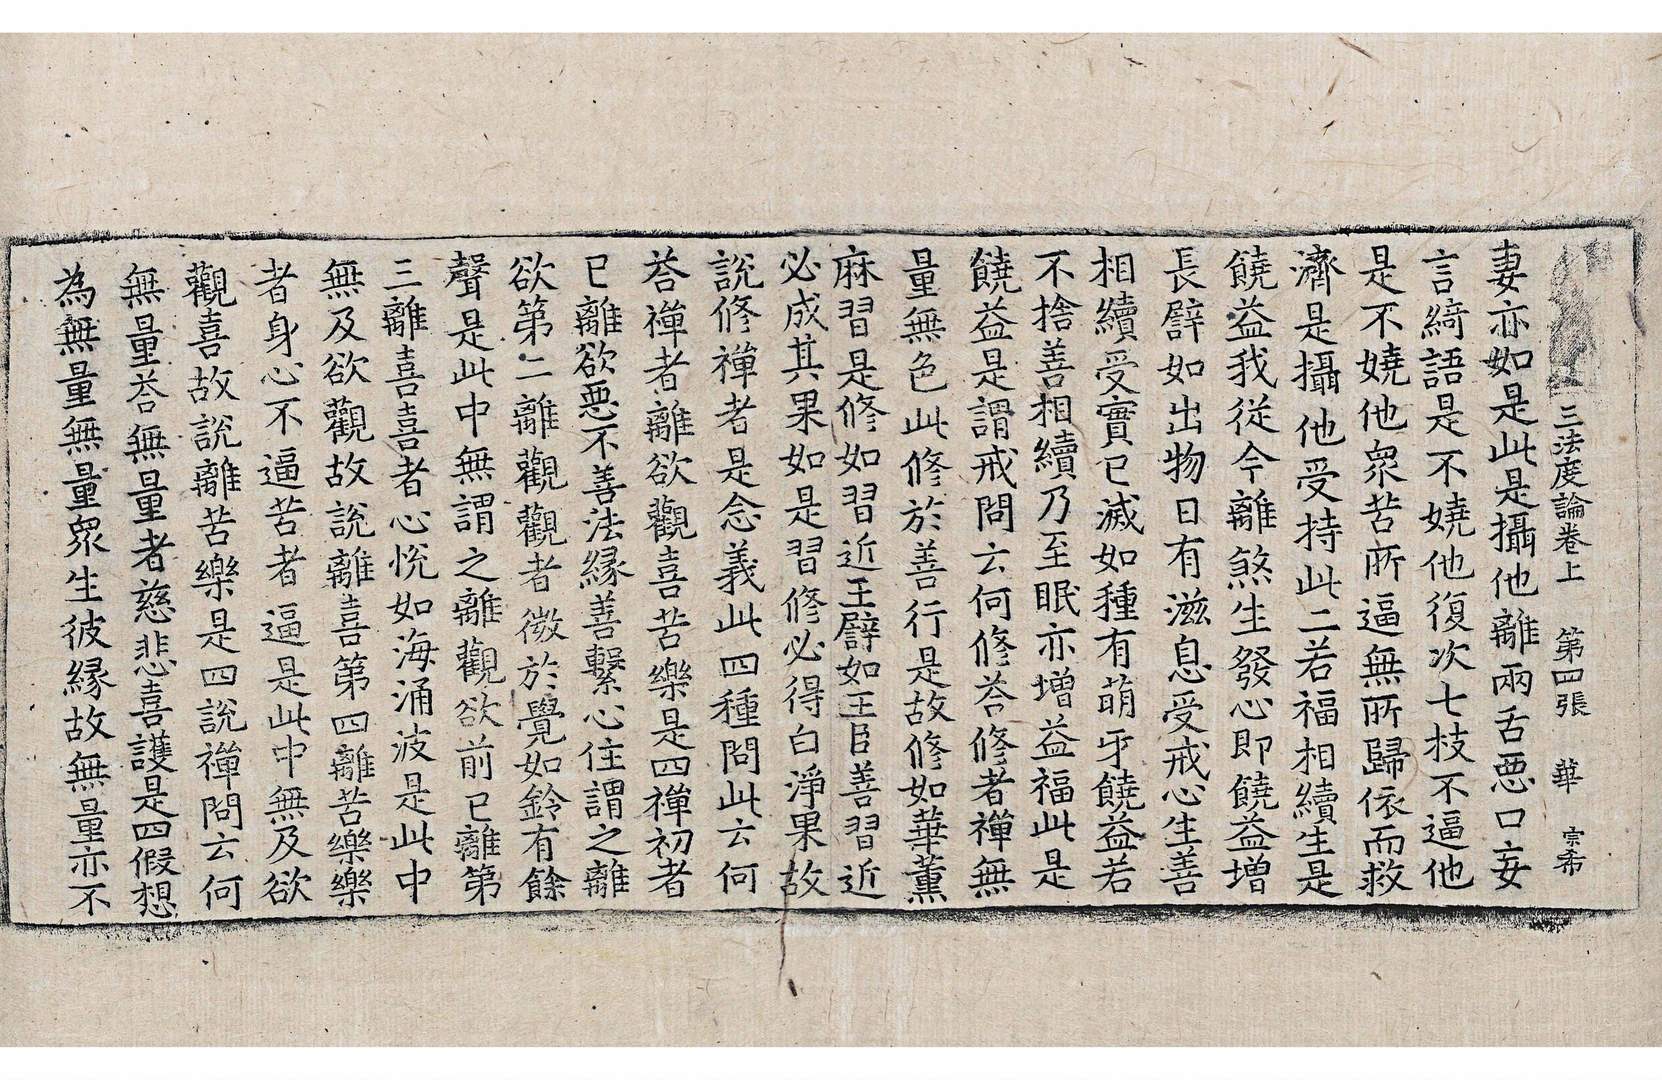 三法度論卷上　第四張　華　宗希
妻亦如是此是攝他離兩舌惡口妄
言綺語是不嬈他復次七枝不逼他
是不嬈他衆苦所逼無所歸依而救
濟是攝他受持此二若福相續生是
饒益我從今離煞生發心即饒益增
長譬如出物日有滋息受戒心生善
相續受實已滅如種有萌牙饒益若
不捨善相續乃至眠亦增益福此是
饒益是謂戒問云何修荅修者禪無
量無色此修於善行是故修如華薰
麻習是修如習近王譬如王臣善習近
必成其果如是習修必得白淨果故
說修禪者是念義此四種問此云何
荅禪者離欲觀喜苦樂是四禪初者
已離欲惡不善法緣善繫心住謂之離
欲第二離觀觀者微於覺如鈴有餘
聲是此中無謂之離觀欲前已離第
三離喜喜者心悅如海涌波是此中
無及欲觀故說離喜第四離苦樂樂
者身心不逼苦者逼是此中無及欲
觀喜故說離苦樂是四說禪問云何
無量荅無量者慈悲喜護是四假想
為無量無量衆生彼緣故無量亦不